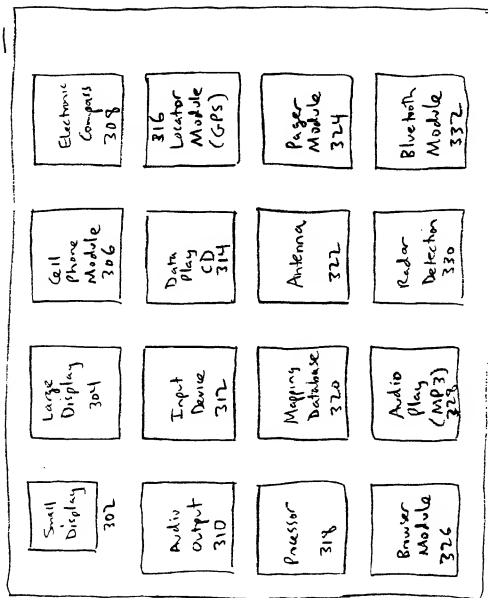 Small
Display
302
Large
Display
304
Cell
Phone
Module
306
Electronic
Compass
308
Audio
Output
310
Input
Device
312
Data
Play
CD
314
316
Locator
Module
(GPS)
Processor
318
Mapping
Database
320
Antenna
322
Pager
Module
324
Browser
Module
326
Audio
Play
(MP3)
328
Radar
Detection
330
Bluetooth
Module
332